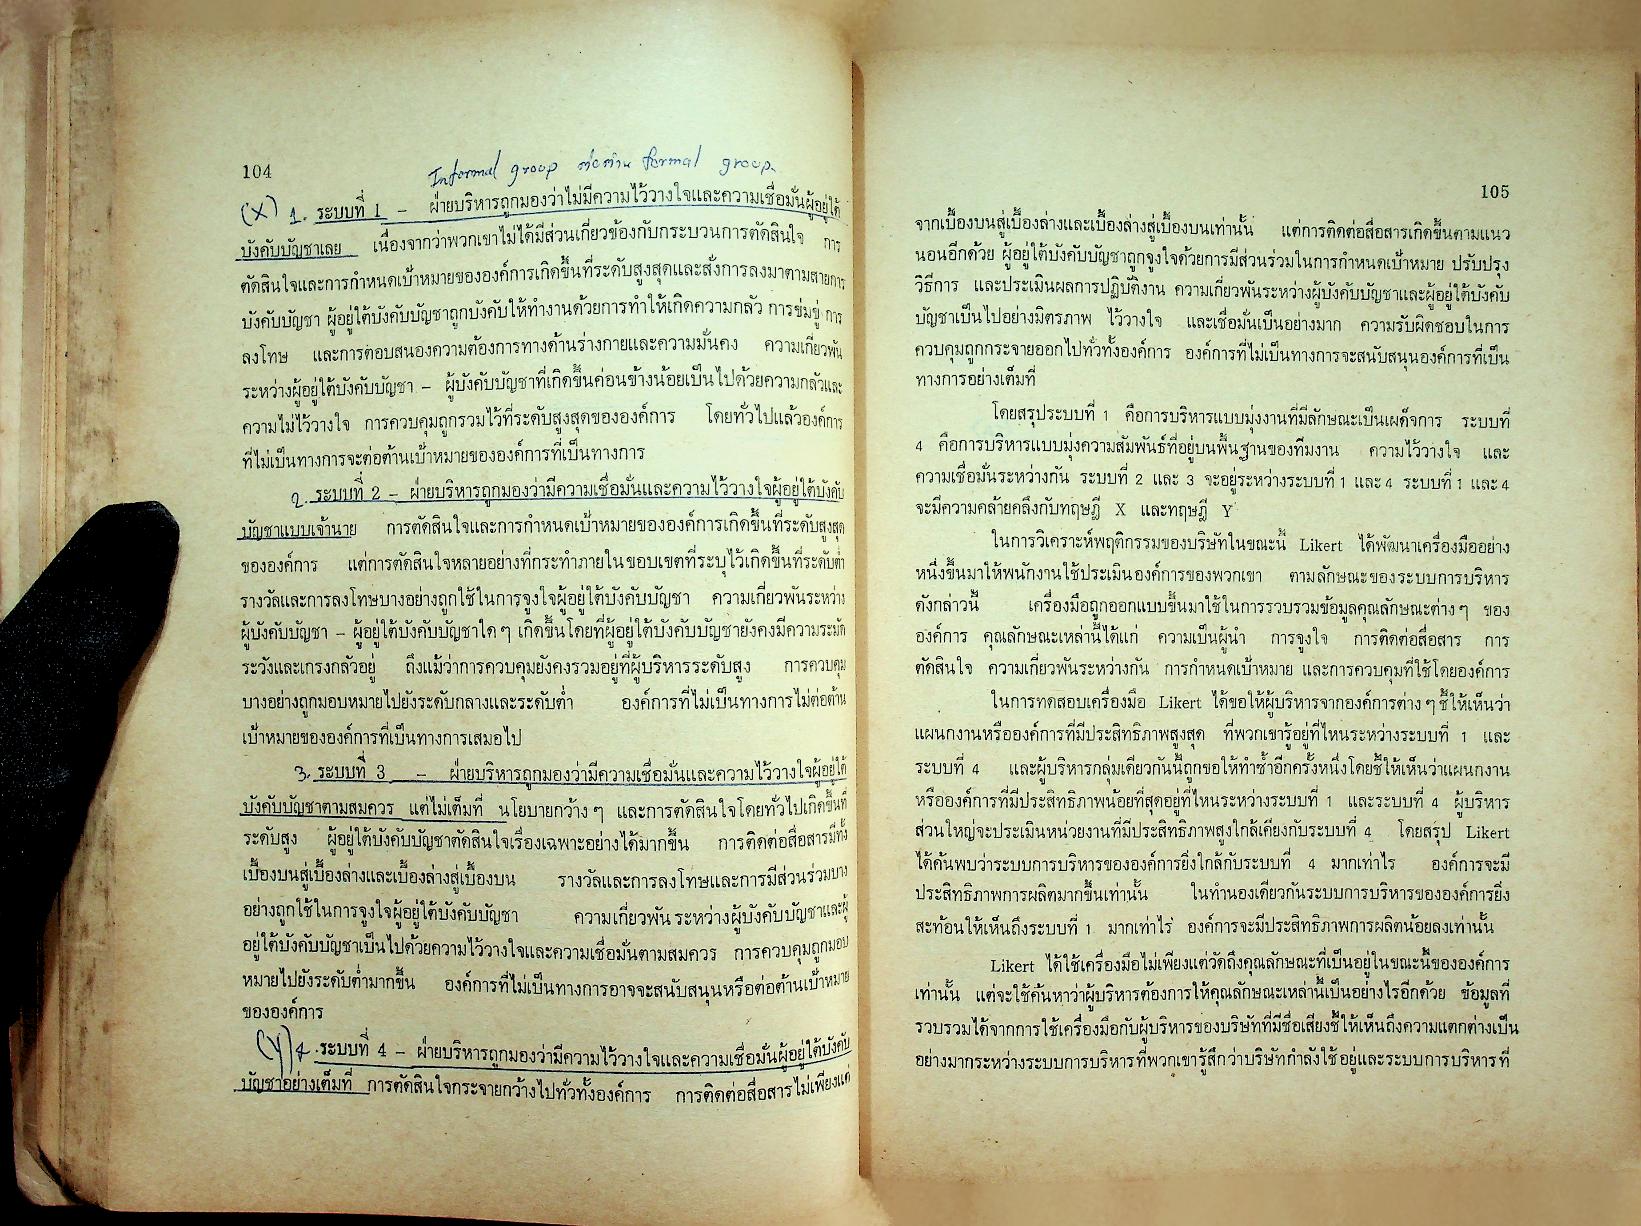 104
Informal group ต่อต้าน formal group.
(X) 1. ระบบที่ 1 – ฝ่ายบริหารถูกมองว่าไม่มีความไว้วางใจและความเชื่อมั่นผู้อยู่ใต้
บังคับบัญชาเลย เนื่องจากว่าพวกเขาไม่ได้มีส่วนเกี่ยวข้องกับกระบวนการตัดสินใจ การ
ตัดสินใจและการกำหนดเป้าหมายขององค์การเกิดขึ้นที่ระดับสูงสุดและสั่งการลงมาตามสายการ
บังคับบัญชา ผู้อยู่ใต้บังคับบัญชาถูกบังคับให้ทำงานด้วยการทำให้เกิดความกลัว การข่มขู่ การ
ลงโทษ และการตอบสนองความต้องการทางด้านร่างกายและความมั่นคง ความเกี่ยวพัน
ระหว่างผู้อยู่ใต้บังคับบัญชา – ผู้บังคับบัญชาที่เกิดขึ้นค่อนข้างน้อยเป็นไปด้วยความกลัวและ
ความไม่ไว้วางใจ การควบคุมถูกรวมไว้ที่ระดับสูงสุดขององค์การ โดยทั่วไปแล้วองค์การ
ที่ไม่เป็นทางการจะต่อต้านเป้าหมายขององค์การที่เป็นทางการ
2. ระบบที่ 2 – ฝ่ายบริหารถูกมองว่ามีความเชื่อมั่นและความไว้วางใจผู้อยู่ใต้บังคับ
บัญชาแบบเจ้านาย การตัดสินใจและการกำหนดเป้าหมายขององค์การเกิดขึ้นที่ระดับสูงสุด
ขององค์การ แต่การตัดสินใจหลายอย่างที่กระทำภายในขอบเขตที่ระบุไว้เกิดขึ้นที่ระดับต่ำ
รางวัลและการลงโทษบางอย่างถูกใช้ในการจูงใจผู้อยู่ใต้บังคับบัญชา ความเกี่ยวพันระหว่าง
ผู้บังคับบัญชา – ผู้อยู่ใต้บังคับบัญชาใด ๆ เกิดขึ้นโดยที่ผู้อยู่ใต้บังคับบัญชายังคงมีความระมัด
ระวังและเกรงกลัวอยู่ ถึงแม้ว่าการควบคุมยังคงรวมอยู่ที่ผู้บริหารระดับสูง การควบคุม
บางอย่างถูกมอบหมายไปยังระดับกลางและระดับต่ำ องค์การที่ไม่เป็นทางการไม่ต่อต้าน
เป้าหมายขององค์การที่เป็นทางการเสมอไป
3. ระบบที่ 3 – ฝ่ายบริหารถูกมองว่ามีความเชื่อมั่นและความไว้วางใจผู้อยู่ใต้
บังคับบัญชาตามสมควร แต่ไม่เต็มที่ นโยบายกว้าง ๆ และการตัดสินใจโดยทั่วไปเกิดขึ้นที่
ระดับสูง ผู้อยู่ใต้บังคับบัญชาตัดสินใจเรื่องเฉพาะอย่างได้มากขึ้น การติดต่อสื่อสารมีทั้ง
เบื้องบนสู่เบื้องล่างและเบื้องล่างสู่เบื้องบน รางวัลและการลงโทษและการมีส่วนร่วมบาง
อย่างถูกใช้ในการจูงใจผู้อยู่ใต้บังคับบัญชา ความเกี่ยวพันระหว่างผู้บังคับบัญชาและผู้
อยู่ใต้บังคับบัญชาเป็นไปด้วยความไว้วางใจและความเชื่อมั่นตามสมควร การควบคุมถูกมอบ
หมายไปยังระดับต่ำมากขึ้น องค์การที่ไม่เป็นทางการอาจจะสนับสนุนหรือต่อต้านเป้าหมาย
ขององค์การ
(Y) 4. ระบบที่ 4 – ฝ่ายบริหารถูกมองว่ามีความไว้วางใจและความเชื่อมั่นผู้อยู่ใต้บังคับ
บัญชาอย่างเต็มที่ การตัดสินใจกระจายกว้างไปทั่วทั้งองค์การ การติดต่อสื่อสารไม่เพียงแต่
105
จากเบื้องบนสู่เบื้องล่างและเบื้องล่างสู่เบื้องบนเท่านั้น แต่การติดต่อสื่อสารเกิดขึ้นตามแนว
นอนอีกด้วย ผู้อยู่ใต้บังคับบัญชาถูกจูงใจด้วยการมีส่วนร่วมในการกำหนดเป้าหมาย ปรับปรุง
วิธีการ และประเมินผลการปฏิบัติงาน ความเกี่ยวพันระหว่างผู้บังคับบัญชาและผู้อยู่ใต้บังคับ
บัญชาเป็นไปอย่างมิตรภาพ ไว้วางใจ และเชื่อมั่นเป็นอย่างมาก ความรับผิดชอบในการ
ควบคุมถูกกระจายออกไปทั่วทั้งองค์การ องค์การที่ไม่เป็นทางการจะสนับสนุนองค์การที่เป็น
ทางการอย่างเต็มที่
โดยสรุประบบที่ 1 คือการบริหารแบบมุ่งงานที่มีลักษณะเป็นเผด็จการ ระบบที่
4 คือการบริหารแบบมุ่งความสัมพันธ์ที่อยู่บนพื้นฐานของทีมงาน ความไว้วางใจ และ
ความเชื่อมั่นระหว่างกัน ระบบที่ 2 และ 3 จะอยู่ระหว่างระบบที่ 1 และ 4 ระบบที่ 1 และ 4
จะมีความคล้ายคลึงกับทฤษฎี X และทฤษฎี Y
ในการวิเคราะห์พฤติกรรมของบริษัทในขณะนี้ Likert ได้พัฒนาเครื่องมืออย่าง
หนึ่งขึ้นมาให้พนักงานใช้ประเมินองค์การของพวกเขา ตามลักษณะของระบบการบริหาร
ดังกล่าวนี้ เครื่องมือถูกออกแบบขึ้นมาใช้ในการรวบรวมข้อมูลคุณลักษณะต่าง ๆ ของ
องค์การ คุณลักษณะเหล่านี้ได้แก่ ความเป็นผู้นำ การจูงใจ การติดต่อสื่อสาร การ
ตัดสินใจ ความเกี่ยวพันระหว่างกัน การกำหนดเป้าหมาย และการควบคุมที่ใช้โดยองค์การ
ในการทดสอบเครื่องมือ Likert ได้ขอให้ผู้บริหารจากองค์การต่าง ๆ ชี้ให้เห็นว่า
แผนกงานหรือองค์การที่มีประสิทธิภาพสูงสุด ที่พวกเขารู้อยู่ที่ไหนระหว่างระบบที่ 1 และ
ระบบที่ 4 และผู้บริหารกลุ่มเดียวกันนี้ถูกขอให้ทำซ้ำอีกครั้งหนึ่งโดยชี้ให้เห็นว่าแผนกงาน
หรือองค์การที่มีประสิทธิภาพน้อยที่สุดอยู่ที่ไหนระหว่างระบบที่ 1 และระบบที่ 4 ผู้บริหาร
ส่วนใหญ่จะประเมินหน่วยงานที่มีประสิทธิภาพสูงใกล้เคียงกับระบบที่ 4 โดยสรุป Likert
ได้ค้นพบว่าระบบการบริหารขององค์การยิ่งใกล้กับระบบที่ 4 มากเท่าไร องค์การจะมี
ประสิทธิภาพการผลิตมากขึ้นเท่านั้น ในทำนองเดียวกันระบบการบริหารขององค์การยิ่ง
สะท้อนให้เห็นถึงระบบที่ 1 มากเท่าไร่ องค์การจะมีประสิทธิภาพการผลิตน้อยลงเท่านั้น
Likert ได้ใช้เครื่องมือไม่เพียงแต่วัดถึงคุณลักษณะที่เป็นอยู่ในขณะนี้ขององค์การ
เท่านั้น แต่จะใช้ค้นหาว่าผู้บริหารต้องการให้คุณลักษณะเหล่านี้เป็นอย่างไรอีกด้วย ข้อมูลที่
รวบรวมได้จากการใช้เครื่องมือกับผู้บริหารของบริษัทที่มีชื่อเสียงชี้ให้เห็นถึงความแตกต่างเป็น
อย่างมากระหว่างระบบการบริหารที่พวกเขารู้สึกว่าบริษัทกำลังใช้อยู่และระบบการบริหารที่